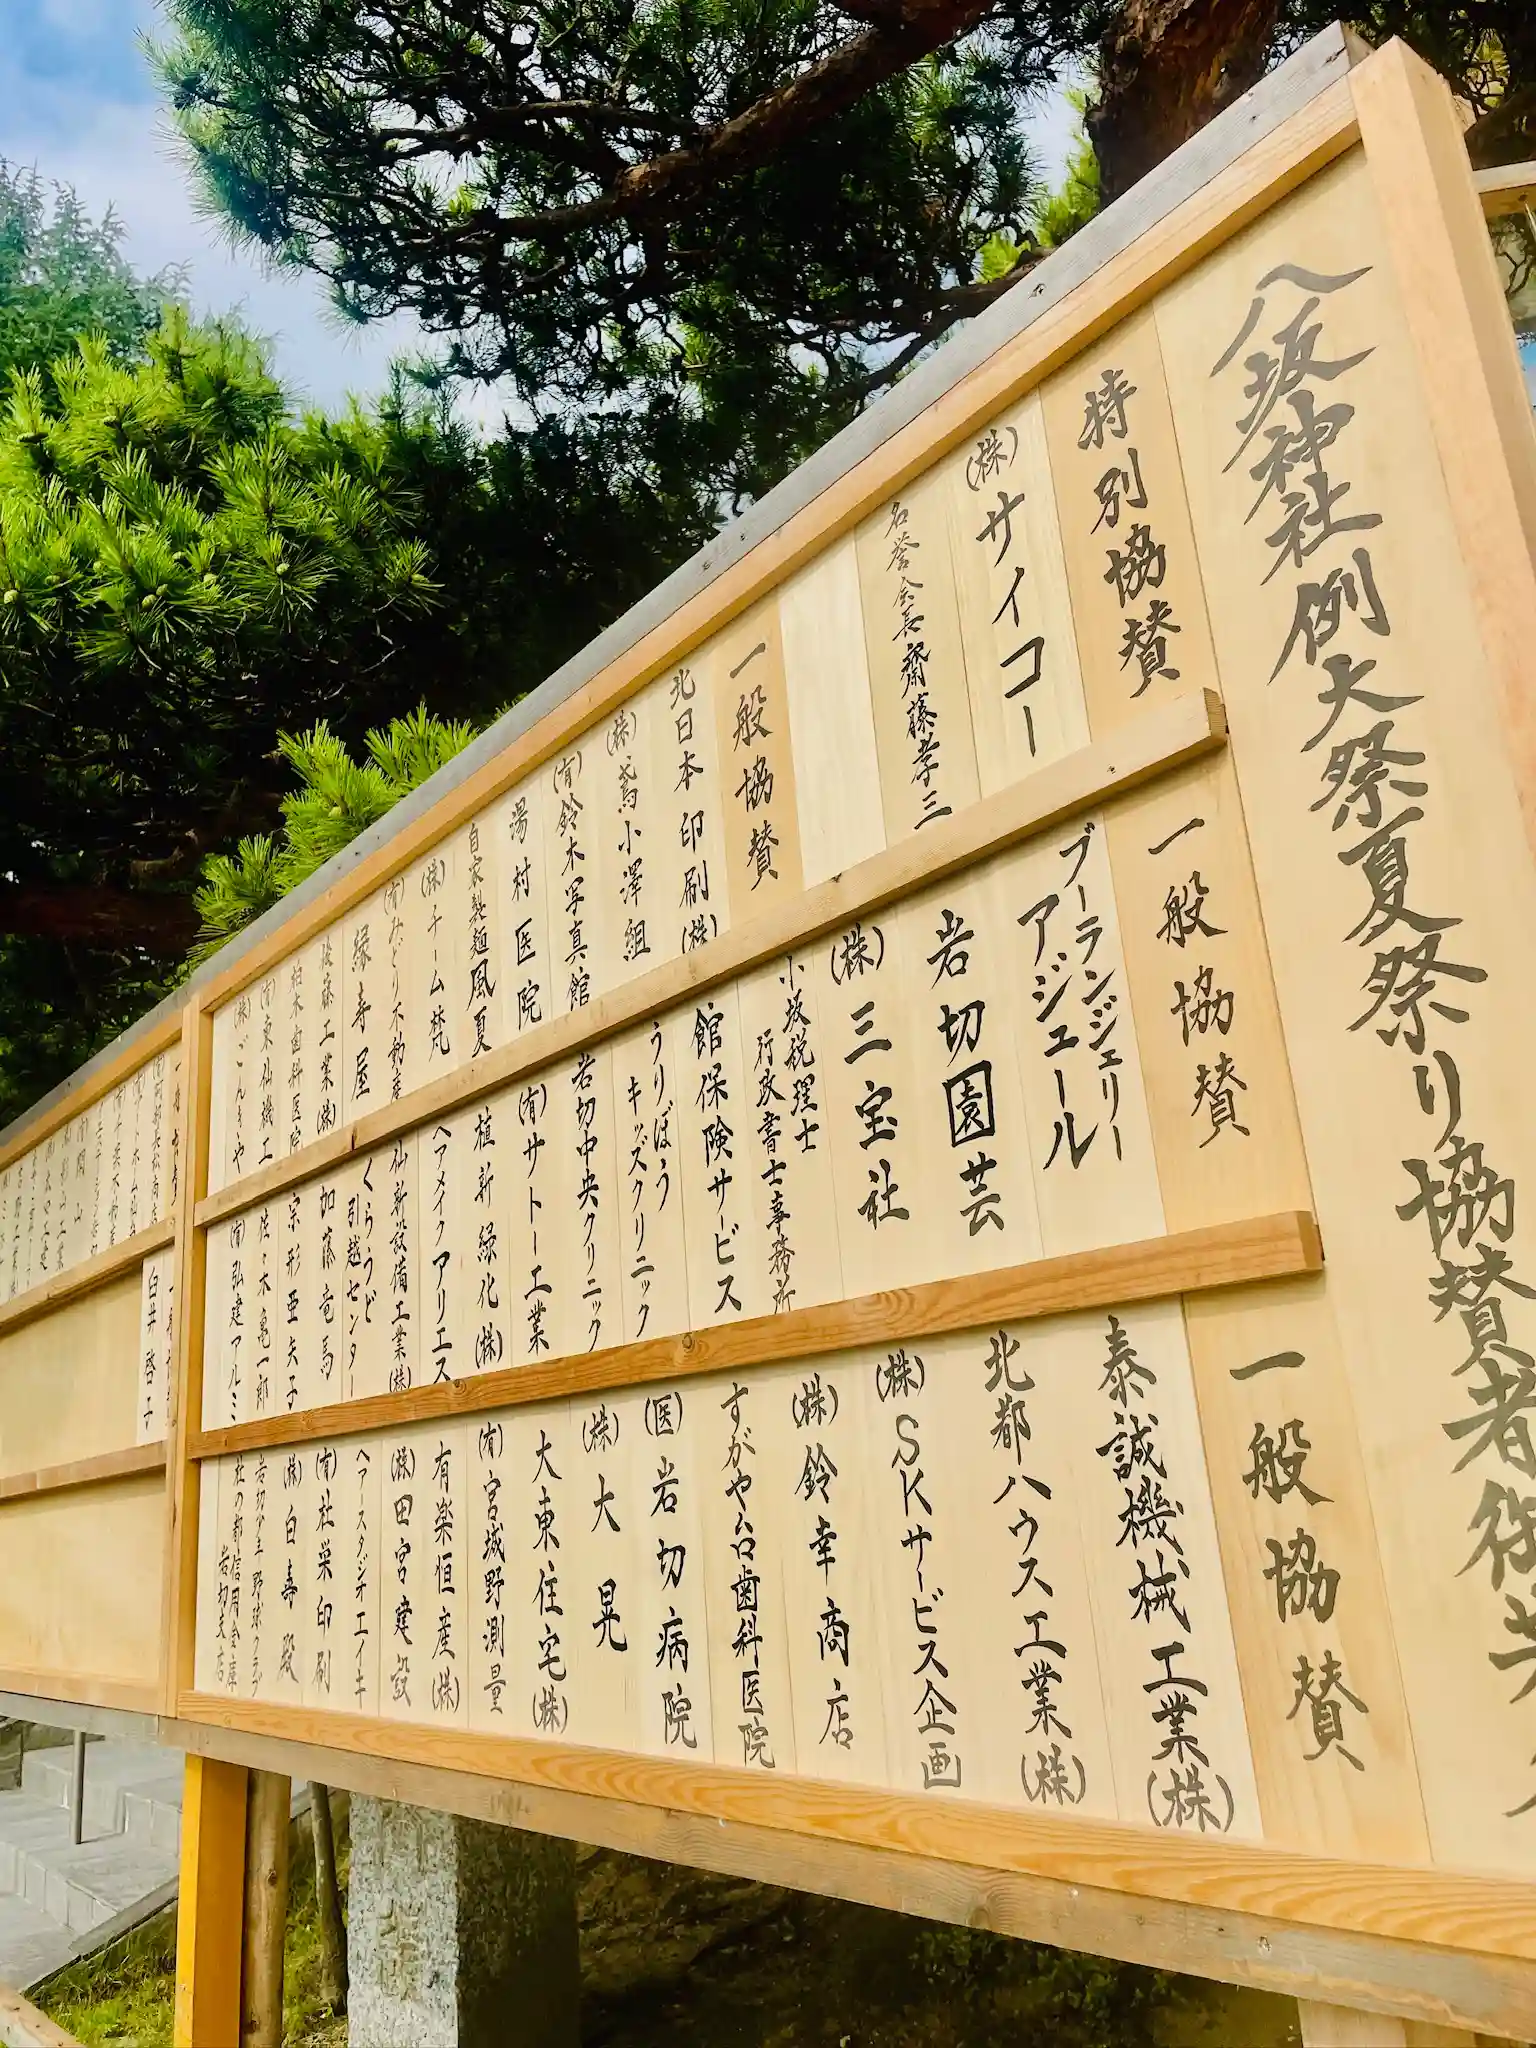 八坂神社例大祭夏祭り協賛者御芳
特別協賛
(株)サイコー
名誉会長 齋藤孝三
一般協賛
北日本印刷(株)
(株)鳶小澤組
(有)鈴木写真館
湯村医院
自家製麺風夏
(株)チーム梵
(有)みどり不動産
縁寿屋
後藤工業(株)
柏木歯科医院
(有)東仙機工
(株)ごんきや
一般協賛
ブーランジェリー
アジュール
岩切園芸
(株)三宝社
小坂税理士
行政書士事務所
館保険サービス
うりぼう
キッズクリニック
岩切中央クリニック
(有)サトー工業
植新緑化(株)
ヘアメイクアリエス
仙新設備工業(株)
くらうど
引越センター
加藤竜馬
宗形亜矢子
佐々木亀一郎
(有)弘建アルミ
一般協賛
泰誠機械工業(株)
北都ハウス工業(株)
(株)SKサービス企画
(株)鈴幸商店
すがや台歯科医院
(医)岩切病院
(株)大晃
大東住宅(株)
(有)宮城野測量
有楽恒産(株)
(株)田宮建設
ヘアースタジオエイキ
(有)社巣印刷
(株)白寿殿
岩切少年野球クラブ
杜の都信用金庫
岩切支店
白井啓子